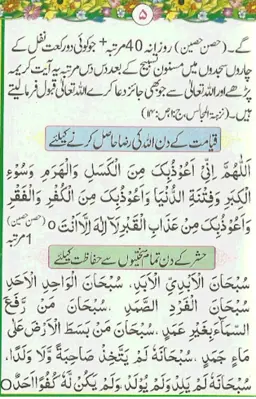 ۵
گے۔ (حصن حصین) روزانہ 40 مرتبہ + جو کوئی دو رکعت نفل کے
چاروں سجدوں میں مسنون تسبیح کے بعد دس دس مرتبہ یہ آیت کریمہ
پڑھے اور اللہ تعالیٰ سے جو بھی جائز دعا کرے اللہ تعالیٰ قبول فرمالیتے
ہیں۔ (نزہۃ المجالس، ج:۱ص:
قیامت کے دن اللہ کی رضا حاصل کرنے کیلئے
اَللّٰهُمَّ اِنِّىْ اَعُوْذُبِكَ مِنَ الْكَسَلِ وَالْهَرَمِ وَسُوْءِ
الْكِبَرِ وَفِتْنَةِ الدُّنْيَا وَاَعُوْذُبِكَ مِنَ الْكُفْرِ وَالْفَقْرِ
وَاَعُوْذُبِكَ مِنْ عَذَابِ الْقَبْرِ لَآ اِلٰهَ اِلَّا اَنْتَ ○ (حصن حصین)
1 مرتبہ
حشر کے دن تمام سختیوں سے حفاظت کیلئے
سُبْحَانَ الْاَبَدِيِّ الْاَبَدِ، سُبْحَانَ الْوَاحِدِ الْاَحَدِ
سُبْحَانَ الْفَرْدِ الصَّمَدِ، سُبْحَانَ مَنْ رَّفَعَ
السَّمَآءَ بِغَيْرِ عَمَدٍ، سُبْحَانَ مَنْ بَسَطَ الْاَرْضَ عَلٰى
مَآءٍ جَمَدٍ، سُبْحَانَهٗ لَمْ يَتَّخِذْ صَاحِبَةً وَّلَا وَلَدًا،
سُبْحَانَهٗ لَمْ يَلِدْ وَلَمْ يُوْلَدْ وَلَمْ يَكُنْ لَّهٗ كُفُوًا اَحَدٌ ○